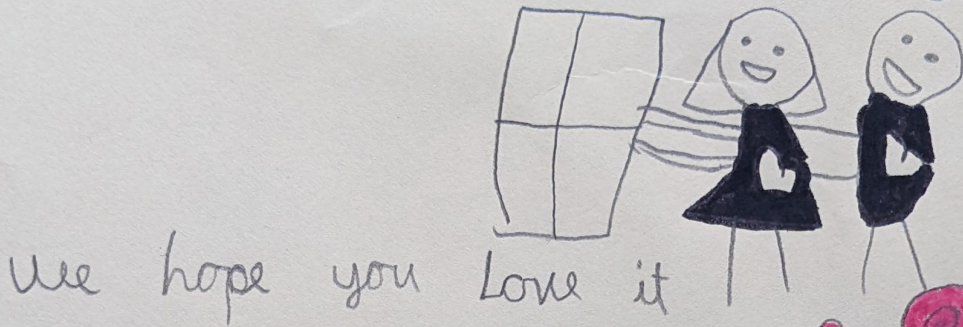 We hope you Love it